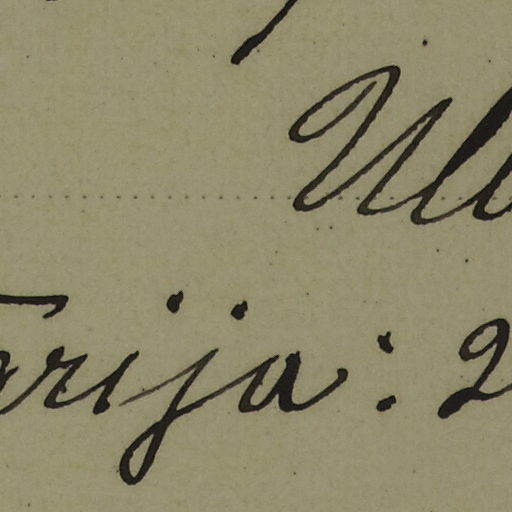 Ul
arija: 2